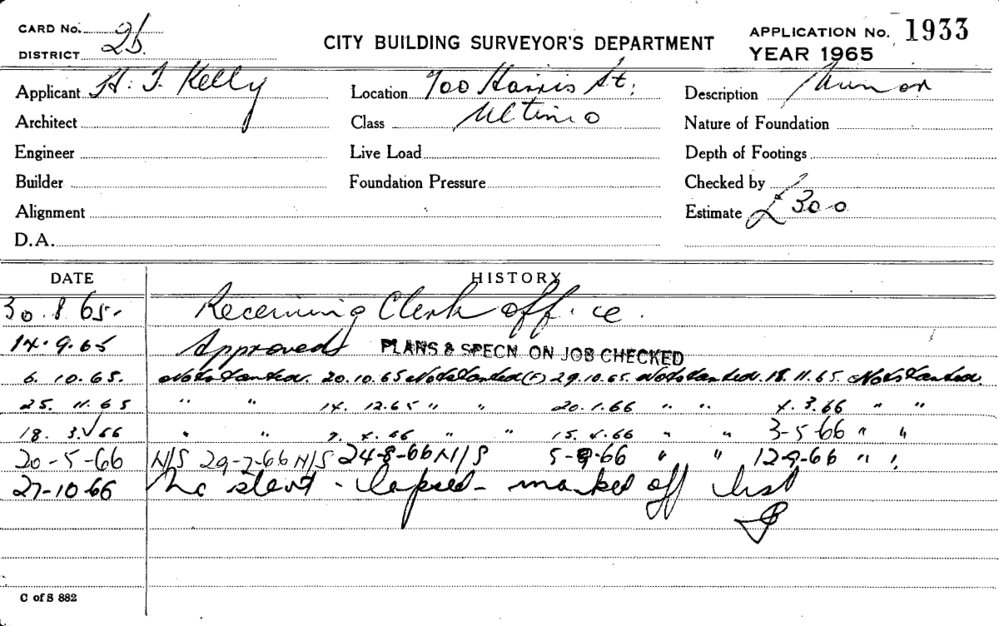 CARD No. 2b.
DISTRICT
CITY BUILDING SURVEYOR'S DEPARTMENT
APPLICATION No. 1933
YEAR 1965
Applicant H. J. Kelly Location 700 Harris St; Description
Architect Class Ultimo Nature of Foundation
Engineer Live Load Depth of Footings
Builder Foundation Pressure Checked by
Alignment Estimate £300
D.A.
DATE HISTORY
30.8.65. Receiving Clerk office.
14.9.65 Approved PLANS & SPECN. ON JOB CHECKED
6.10.65. Not started. 20.10.65 Not started (F) 29.10.65. Not started. 18.11.65. Not started.
25.11.65 " " 14.12.65 " " 20.1.66 " " 4.3.66 " "
18.3.66 " " 7.4.66 " " 15.4.66 " " 3-5-66 " "
20-5-66 N/S 29-7-66 N/S 24-8-66 N/S 5-9-66 " " 12-9-66 " "
27-10-66 No start - lapsed - marked off list
C of S 882